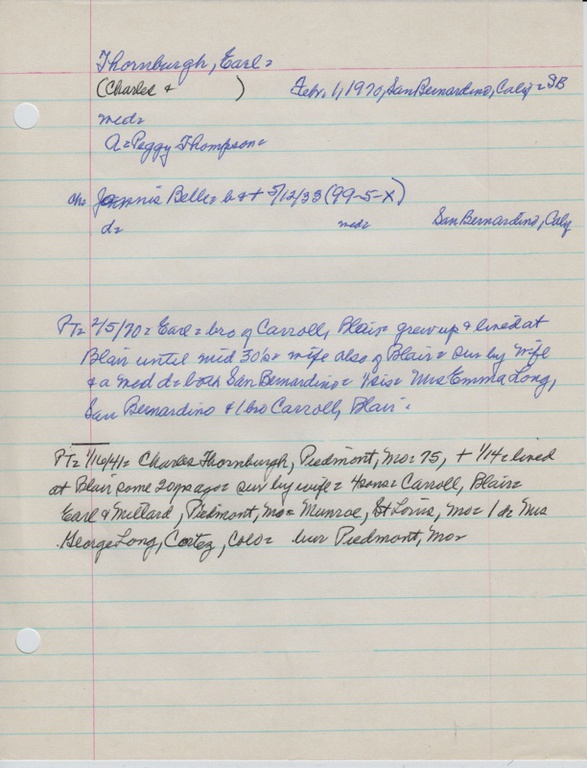 Thornburgh, Earl=
(Charles + ) Febr. 1, 1970, San Bernardino, Calif = SB
med=
a=Peggy Thompson=
ch= Jannis Belle= b & + 5/12/33 (99-5-X)
d= med= San Bernardino, Calif
PT= 2/5/70= Earl= bro of Carroll, Blair= grew up & lived at
Blair until mid 30's= wife also of Blair= sur by wife
& a med d= both San Bernardino= 1 sis= Mrs Emma Long,
San Bernardino & 1 bro Carroll, Blair.
PT= 1/16/41= Charles Thornburgh, Piedmont, Mo= 75, + 1/14= lived
at Blair some 20 yrs ago= sur by wife= 4 sons= Carroll, Blair=
Earl & Millard, Piedmont, Mo= Munroe, St Louis, Mo= 1 d= Mrs
George Long, Cortez, Colo= bur Piedmont, Mo=